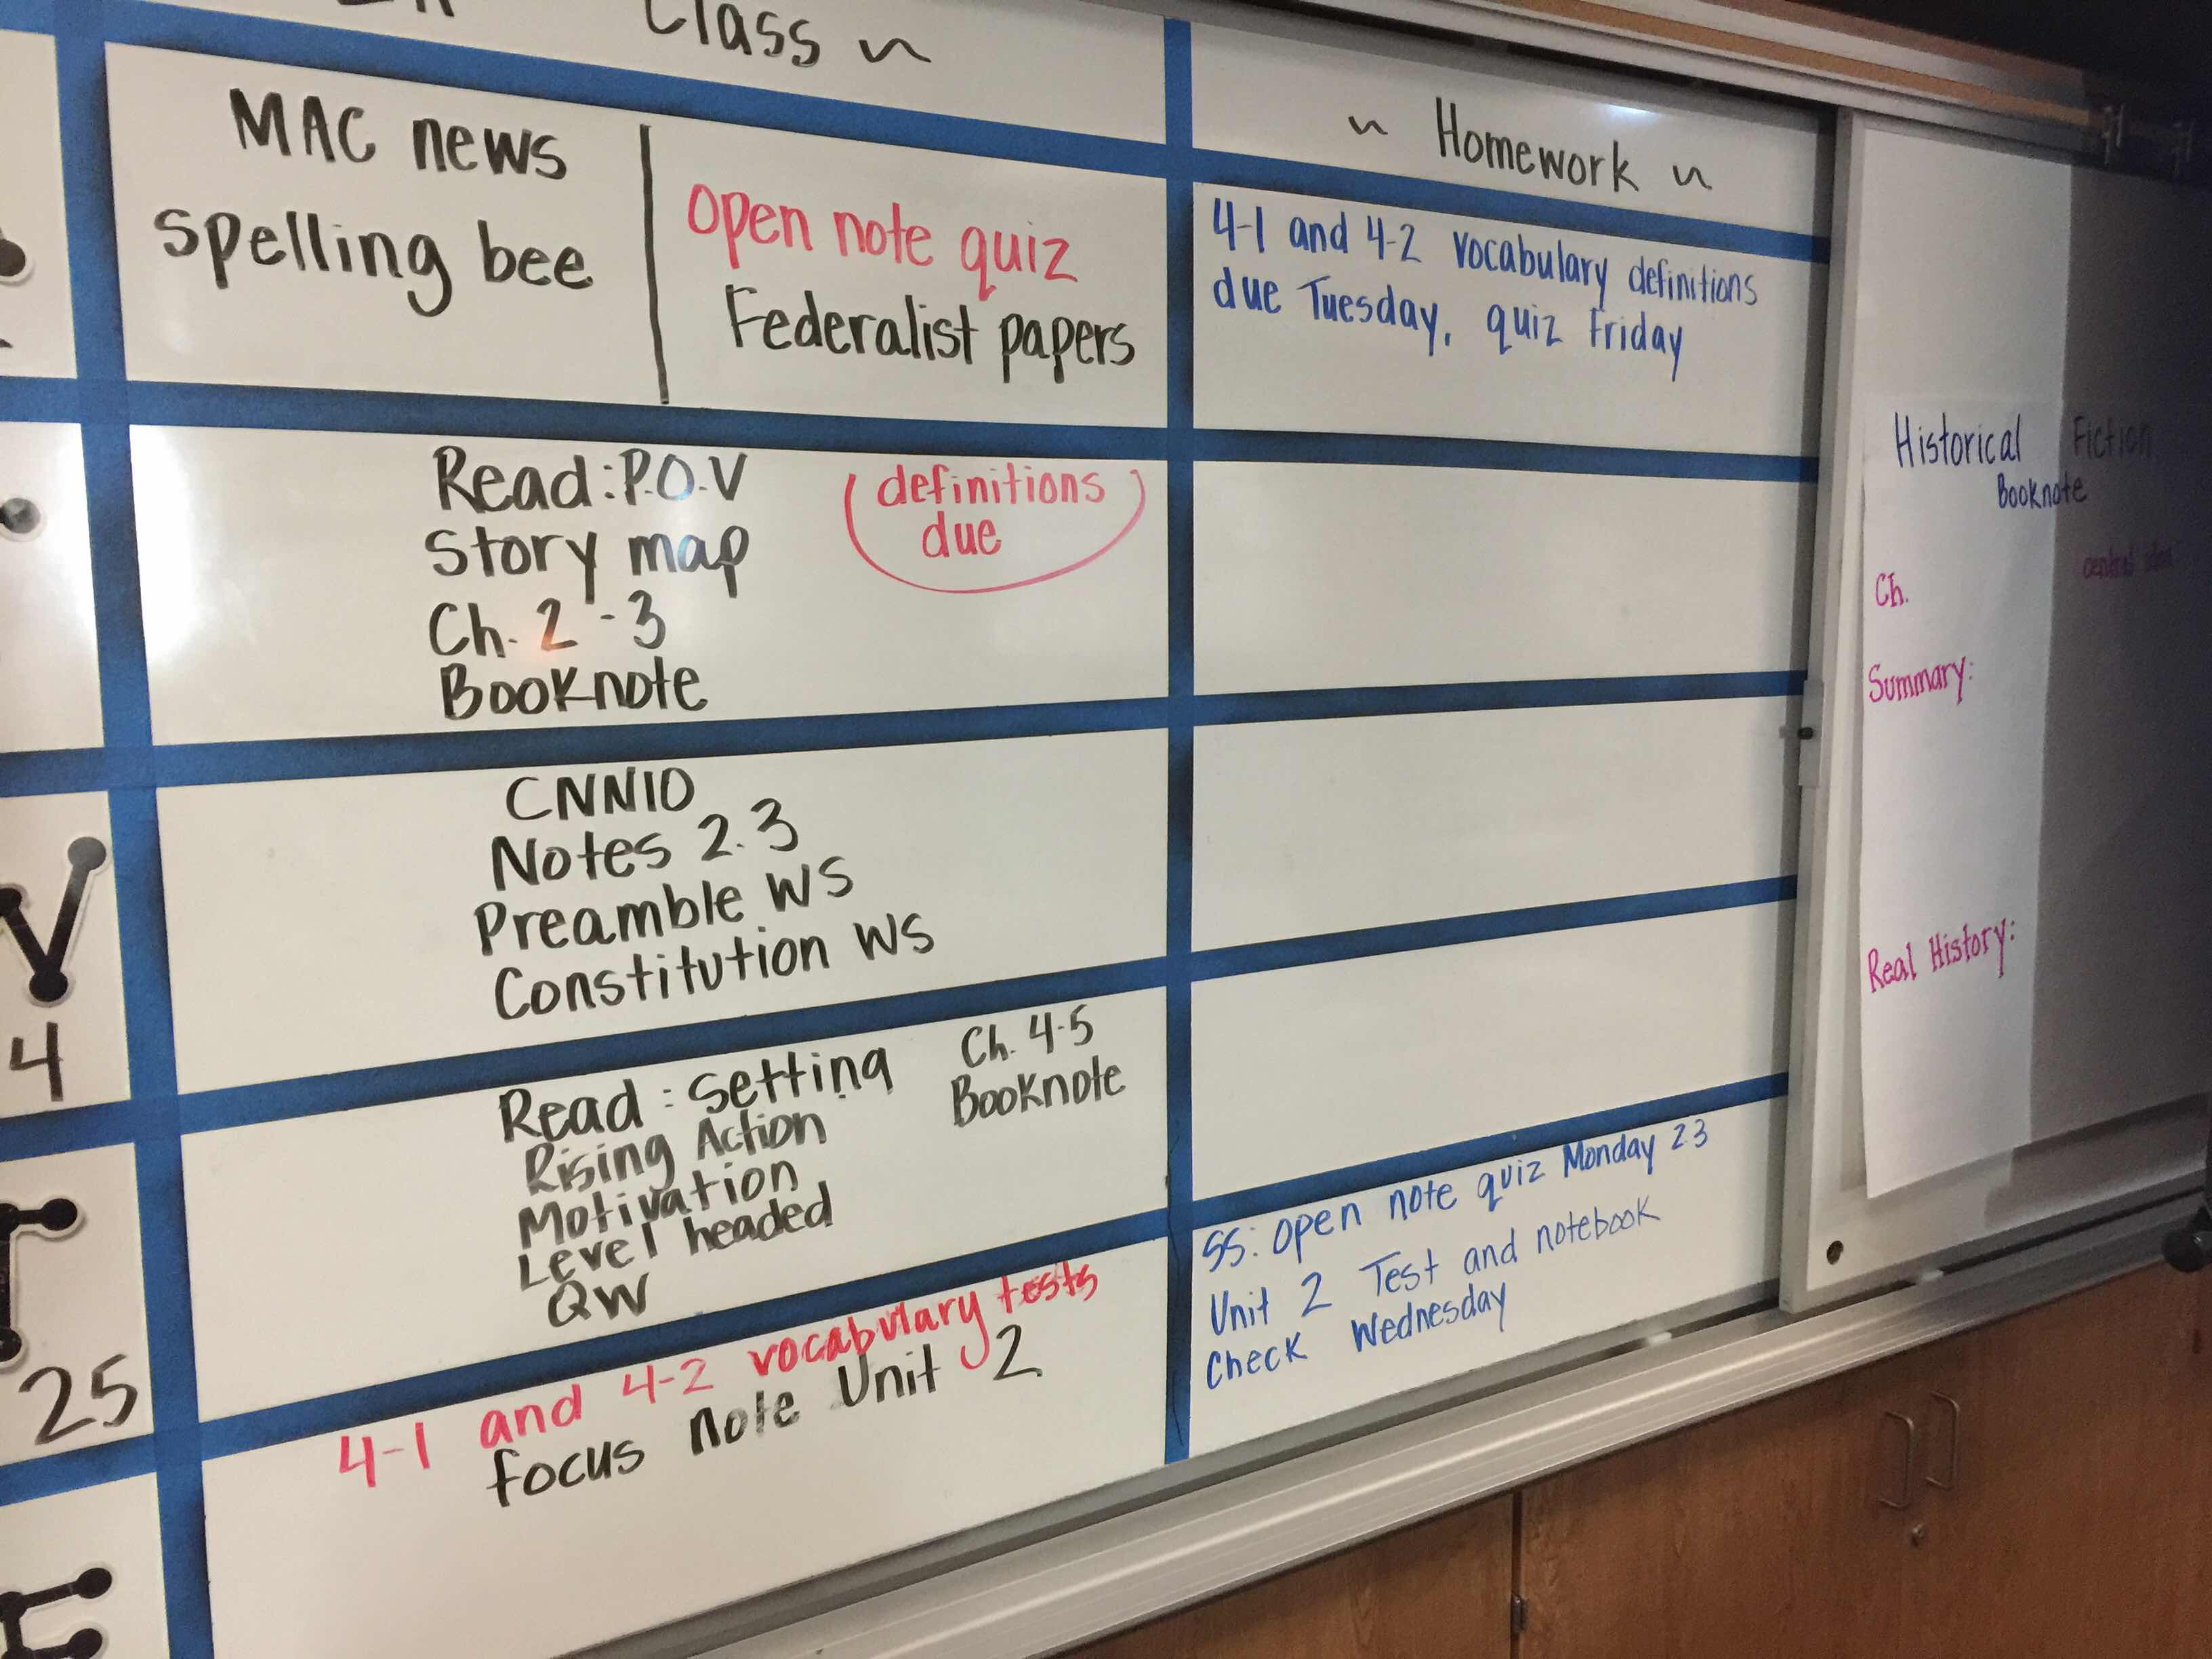 Class ~
~ Homework ~
MAC news
spelling bee
open note quiz
Federalist papers
4-1 and 4-2 vocabulary definitions
due Tuesday, quiz Friday
Read: P.O.V
Story map
Ch. 2-3
Booknote
definitions
due
CNN10
Notes 2.3
Preamble WS
Constitution WS
4
Read: setting
Rising Action
Motivation
Level headed
QW
Ch. 4-5
Booknote
25
4-1 and 4-2 vocabulary tests
focus note Unit 2
SS: open note quiz Monday 2.3
Unit 2 Test and notebook
check Wednesday
Historical Fiction
Booknote
Ch.
central idea
Summary:
Real History: